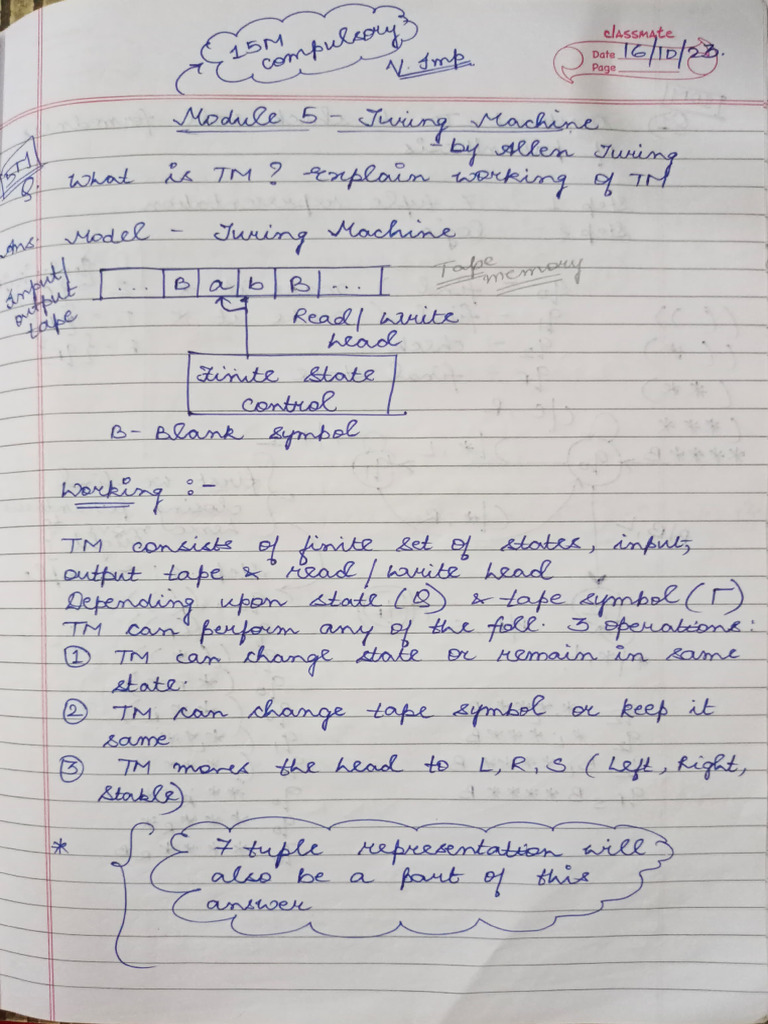 15M
compulsory
V. Imp
classmate
Date 16/10/23.
Page
Module 5 - Turing Machine
- by Allen Turing
5M
Q. What is TM? Explain working of TM
Ans. Model - Turing Machine
Input/
output
tape
... B a b B ...
Tape
memory
Read/Write
head
Finite State
control
B - Blank symbol
Working :-
TM consists of finite set of states, input,
output tape & read/write head
Depending upon state (Q) & tape symbol (Γ)
TM can perform any of the foll. 3 operations:
① TM can change state or remain in same
state.
② TM can change tape symbol or keep it
same
③ TM moves the head to L, R, S (Left, Right,
Stable)
* 7 tuple representation will
also be a part of this
answer